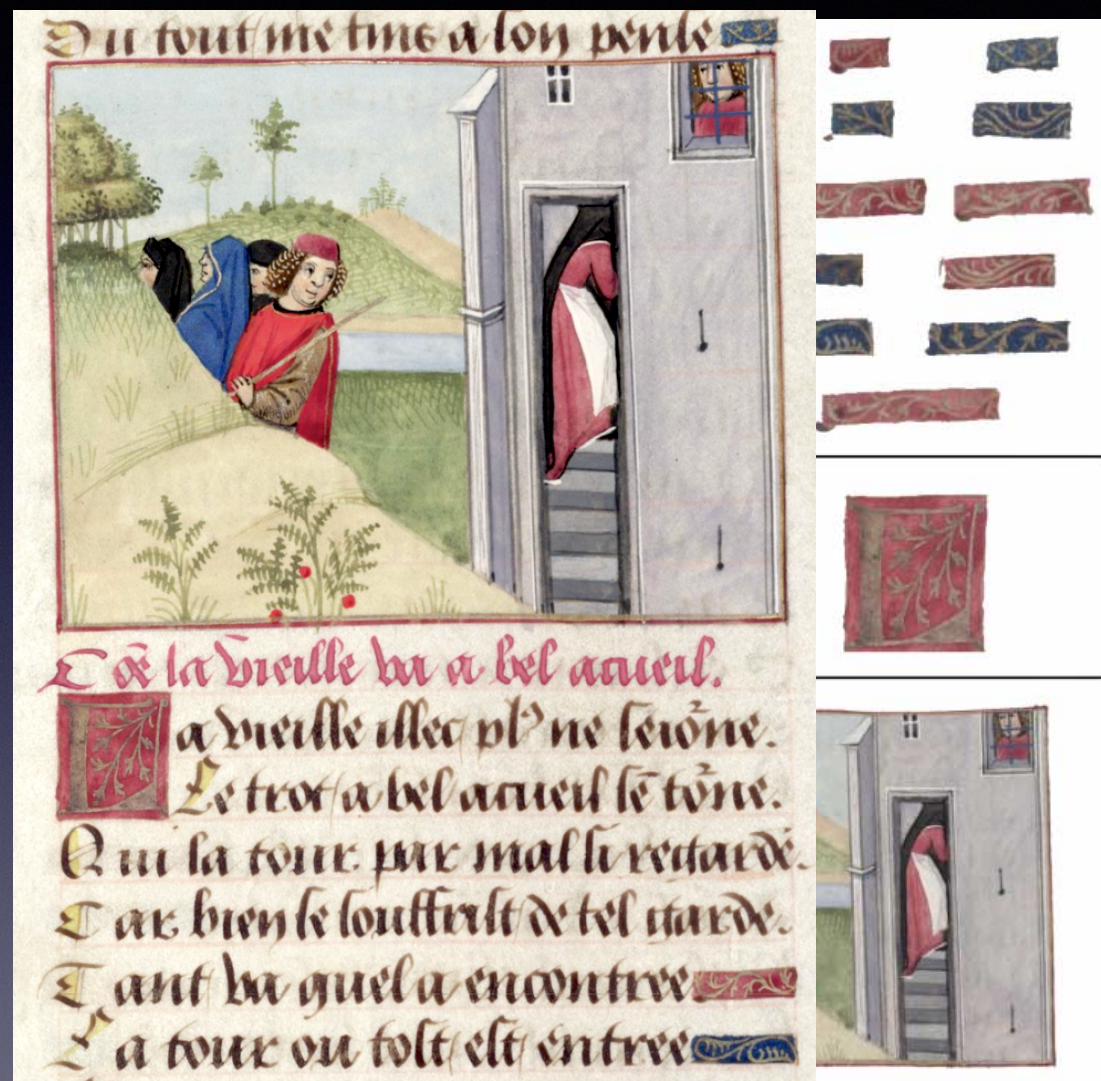 Du tout me tins a son pense
Cõe la vieille va a bel acueil.
La vieille illec plꝰ ne seio᷑ne.
Le trot a bel acueil sẽ to᷑ne.
Qui la tour par mal si regarde.
Car bien se souffrist de tel garde.
Tant va quel a encontree
La tour ou tost est entree